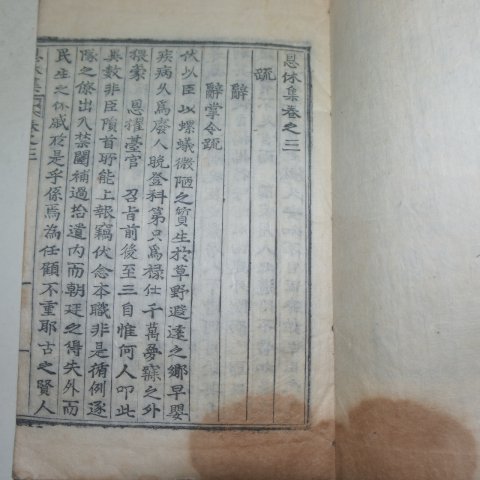 恩休集卷之三
疏
辭
辭掌令疏
伏以臣以螻蟻微陋之質生於草野遐遠之鄉早嬰
疾病久爲廢人晩登科第只爲祿仕千萬夢寐之外
猥蒙 恩擢臺官 召旨前後至三自惟何人叨此
異數非臣隕首所能上報竊伏念本職非是循例逐
隊之僚出入禁闥補過拾遺內而朝廷之得失外而
民生之休戚於是乎係焉爲任顧不重耶古之賢人